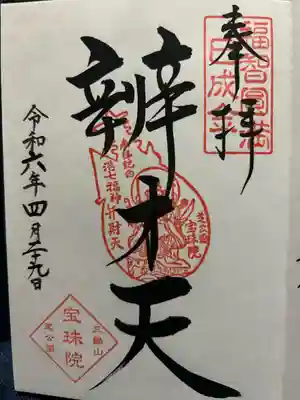 奉拝
福智圓満
巳成金
辨才天
港七福神弁財天
芝公園
宝珠院
令和六年四月二十九日
三縁山
宝珠院
芝公園